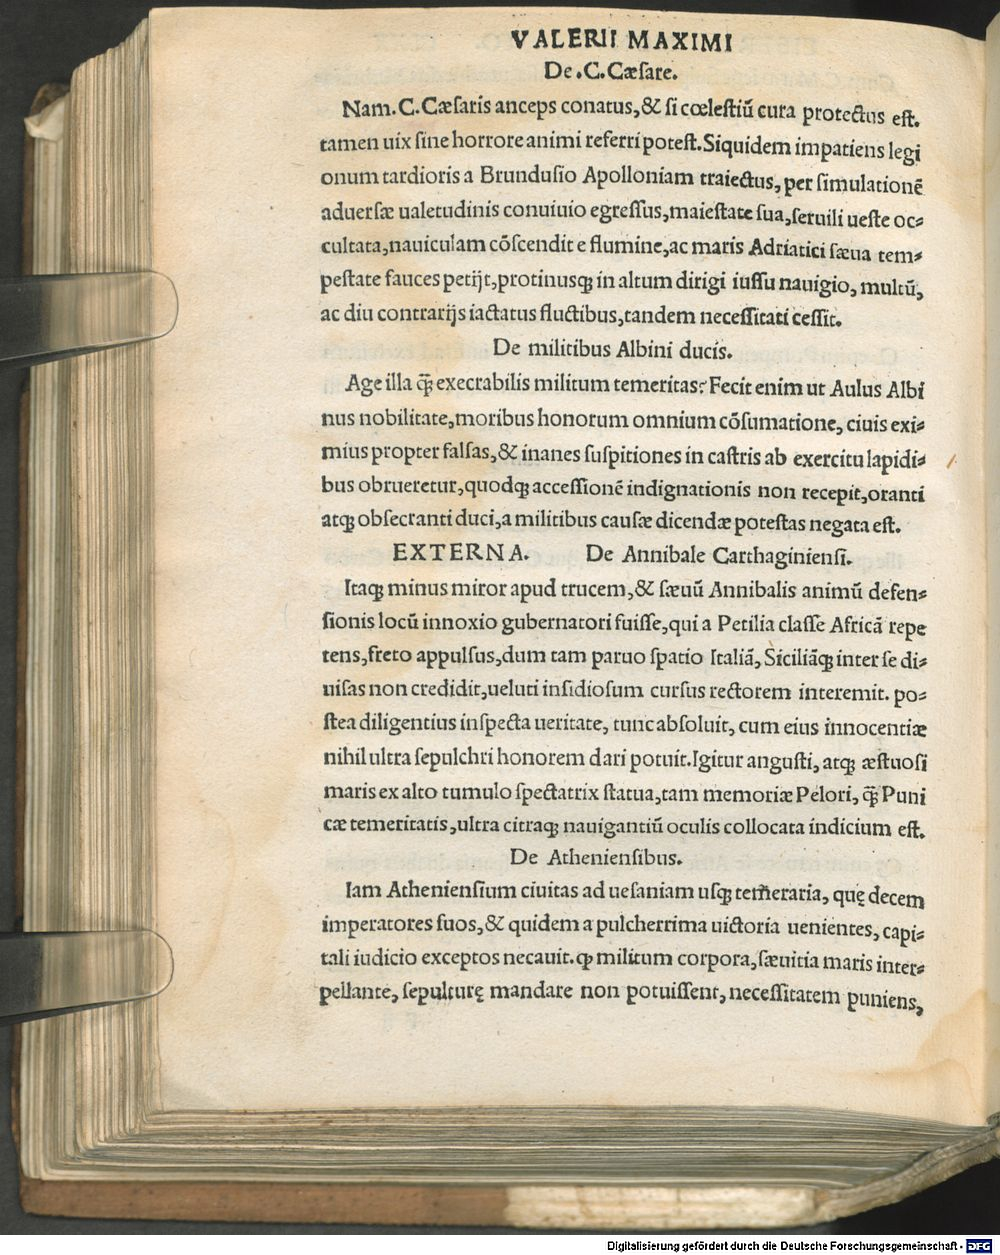 VALERII MAXIMI
De.C.Cæſare.
Nam.C.Cæſaris anceps conatus,& ſi cœleſtiũ cura protectus eſt.
tamen uix ſine horrore animi referri poteſt.Siquidem impatiens legi
onum tardioris a Brunduſio Apolloniam traiectus, per ſimulationẽ
aduerſæ ualetudinis conuiuio egreſſus,maieſtate ſua,ſeruili ueſte oc⸗
cultata,nauiculam cõſcendit e flumine,ac maris Adriatici ſæua tem⸗
peſtate fauces petijt,protinusqꝫ in altum dirigi iuſſu nauigio, multũ,
ac diu contrarijs iactatus fluctibus,tandem neceſſitati ceſſit.
De militibus Albini ducis.
Age illa q̃ꝫ execrabilis militum temeritas? Fecit enim ut Aulus Albi
nus nobilitate,moribus honorum omnium cõſumatione, ciuis exi⸗
mius propter falſas,& inanes ſuſpitiones in caſtris ab exercitu lapidi⸗
bus obrueretur,quodqꝫ acceſſionẽ indignationis non recepit,oranti
atqꝫ obſecranti duci,a militibus cauſæ dicendæ poteſtas negata eſt.
EXTERNA. De Annibale Carthaginienſi.
Itaqꝫ minus miror apud trucem,& ſæuũ Annibalis animũ defen⸗
ſionis locũ innoxio gubernatori fuiſſe,qui a Petilia claſſe Africã repe
tens,freto appulſus,dum tam paruo ſpatio Italiã, Siciliãqꝫ inter ſe di⸗
uiſas non credidit,ueluti inſidioſum curſus rectorem interemit. po⸗
ſtea diligentius inſpecta ueritate, tunc abſoluit, cum eius innocentiæ
nihil ultra ſepulchri honorem dari potuit.Igitur anguſti, atqꝫ æſtuoſi
maris ex alto tumulo ſpectatrix ſtatua,tam memoriæ Pelori, q̃ꝫ Puni
cæ temeritatis,ultra citraqꝫ nauigantiũ oculis collocata indicium eſt.
De Athenienſibus.
Iam Athenienſium ciuitas ad ueſaniam uſqꝫ tem̃eraria, quę decem
imperatores ſuos,& quidem a pulcherrima uictoria uenientes, capi⸗
tali iudicio exceptos necauit.ꝙ militum corpora,ſæuitia maris inter⸗
pellante, ſepulturę mandare non potuiſſent, neceſſitatem puniens,
Digitalisierung gefördert durch die Deutsche Forschungsgemeinschaft - DFG